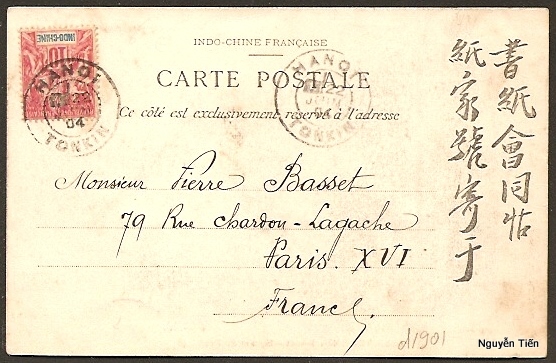 INDO-CHINE
10
HANOI
04
TONKIN
INDO-CHINE FRANÇAISE
CARTE POSTALE
Ce côté est exclusivement réservé à l'adresse
HANOI
22
JUIN
04
TONKIN
Monsieur Pierre Basset
79 Rue Chardon-Lagache
Paris. XVI
France
書紙會同帖
紙家號寄于
d1901
Nguyễn Tiến